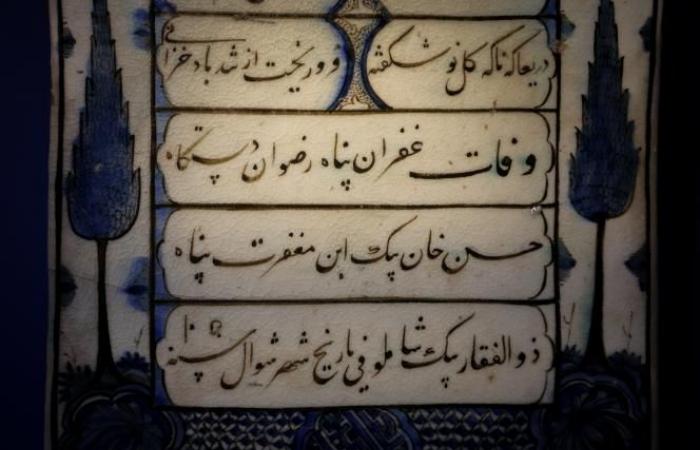 دریغا که ناگه گل نو شکفته فرو ریخت از تند باد خزانی
وفات غفران پناه رضوان دستگاه
حسن خان بیک ابن مغفرت پناه
ذوالفقار بیک شاملو فی تاریخ شهر شوال سنه